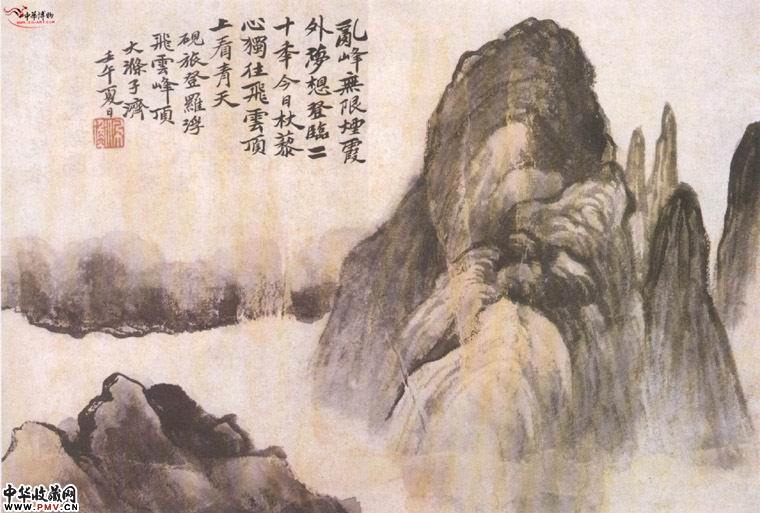 亂峰無限煙霞
外夢想登臨二
十秊今日杖藜
心獨往飛雲頂
上看青天
硯旅登羅浮
飛雲峰頂
大滌子濟
壬午夏日
中华博物
中华收藏网
WWW.PMV.CN